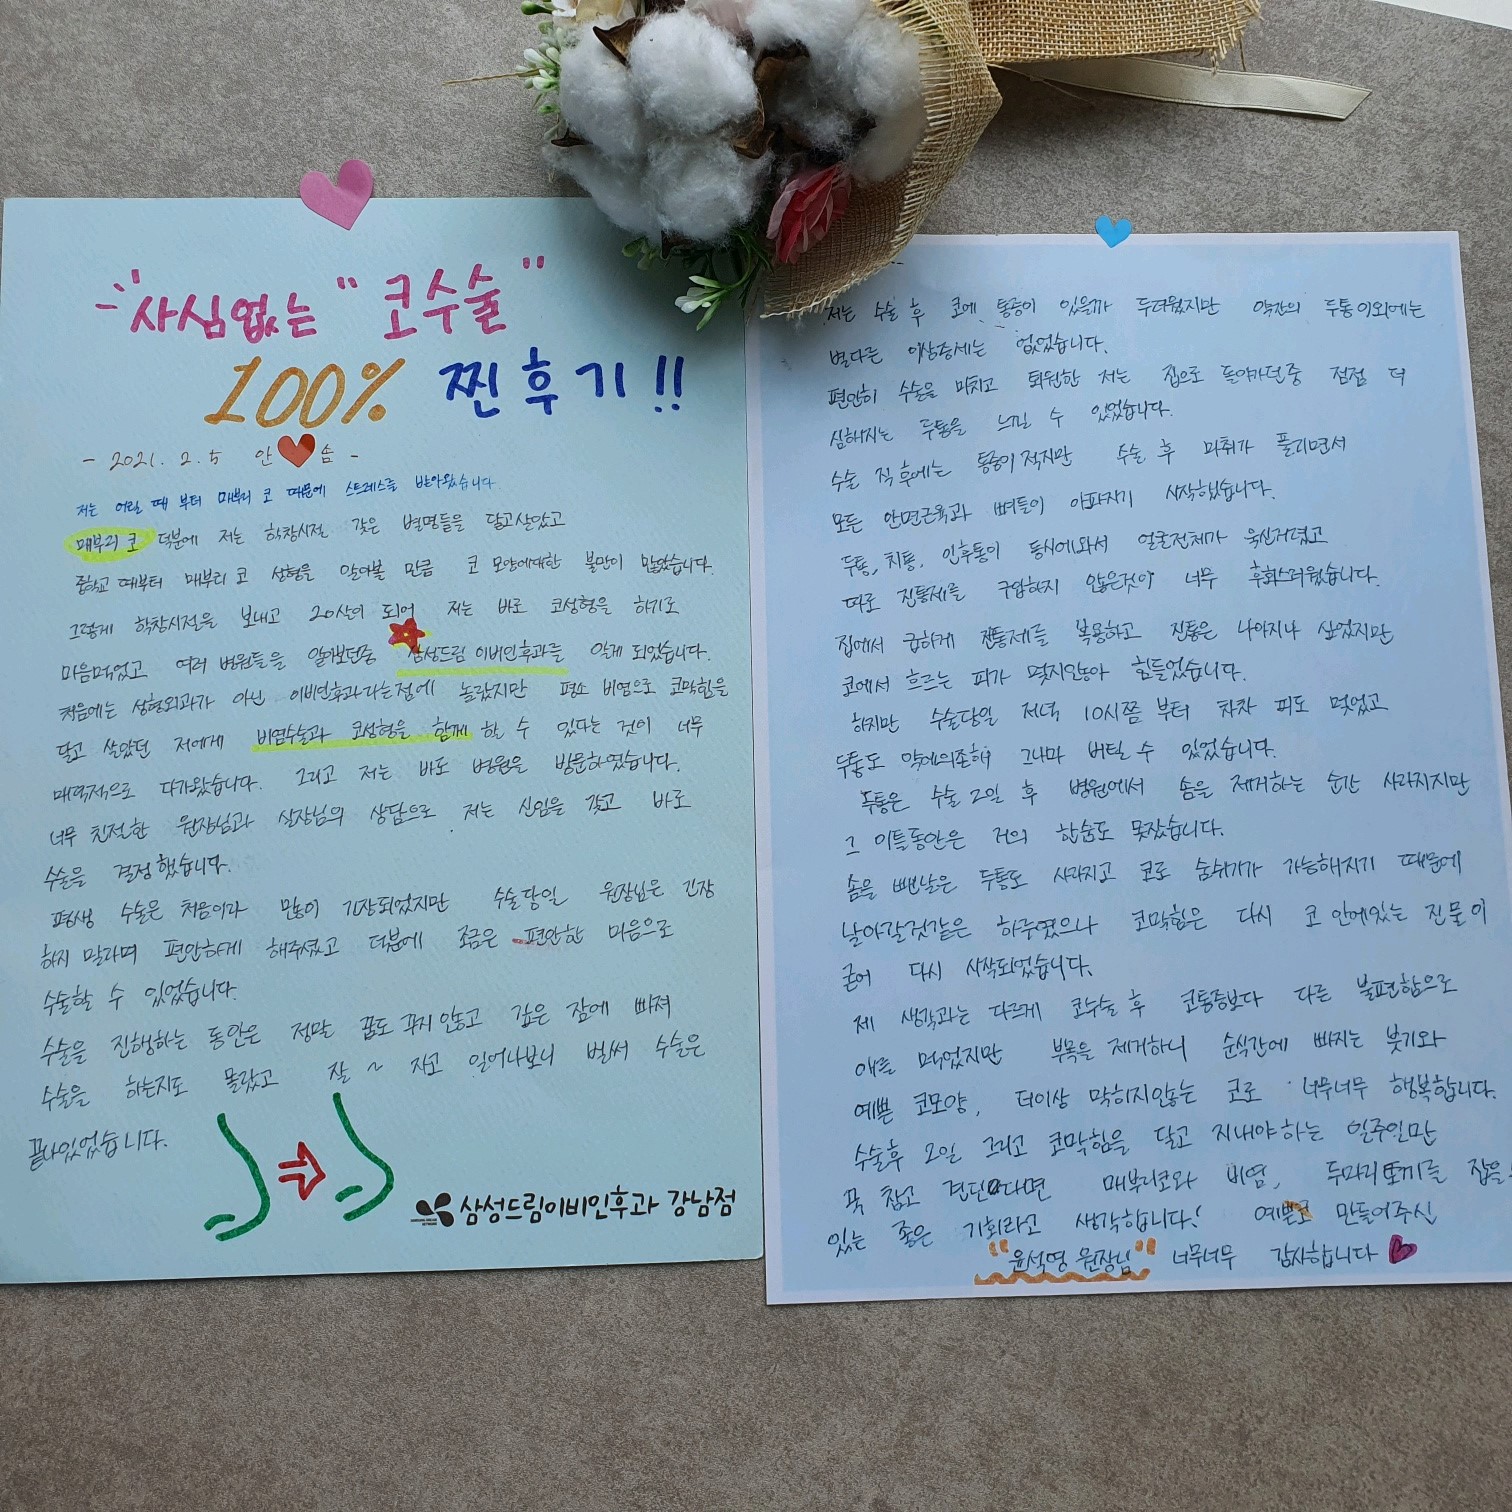 사심없는 "코수술"
100% 찐후기!!
- 2021. 2. 5 안 솜 -
저는 어릴 때 부터 매부리 코 때문에 스트레스를 받아왔습니다.
매부리 코 덕분에 저는 학창시절 갖은 별명들을 달고살았고
중학교 때부터 매부리 코 성형을 알아볼 만큼 코 모양에대한 불만이 많았습니다.
그렇게 학창시절을 보내고 20살이 되어 저는 바로 코성형을 하기로
마음먹었고 여러 병원들을 알아보던중 삼성드림 이비인후과를 알게 되었습니다.
처음에는 성형외과가 아닌 이비인후과라는점에 놀랐지만 평소 비염으로 코막힘을
달고 살았던 저에게 비염수술과 코성형을 함께 할 수 있다는 것이 너무
매력적으로 다가왔습니다. 그리고 저는 바로 병원을 방문하였습니다.
너무 친절한 원장님과 실장님의 상담으로 저는 신임을 갖고 바로
수술을 결정했습니다.
평생 수술은 처음이라 많이 긴장되었지만 수술당일 원장님은 긴장
하지 말라며 편안하게 해주셨고 덕분에 조금은 편안한 마음으로
수술할 수 있었습니다.
수술을 진행하는 동안은 정말 꿈도 꾸지 않고 깊은 잠에 빠져
수술을 하는지도 몰랐고 잘~ 자고 일어나보니 벌써 수술은
끝나있었습니다.
삼성드림이비인후과 강남점
저는 수술 후 코에 통증이 있을까 두려웠지만 약간의 두통이외에는
별다른 이상증세는 없었습니다.
편안히 수술을 마치고 퇴원한 저는 집으로 돌아가던중 점점 더
심해지는 두통을 느낄 수 있었습니다.
수술 직후에는 통증이적지만 수술 후 마취가 풀리면서
모든 안면근육과 뼈들이 아파지기 시작했습니다.
두통, 치통, 인후통이 동시에와서 얼굴전체가 욱신거렸고
따로 진통제를 구입하지 않은것이 너무 후회스러웠습니다.
집에서 급하게 진통제를 복용하고 진통은 나아지나 싶었지만
코에서 흐르는 피가 멎지않아 힘들었습니다.
하지만 수술당일 저녁 10시쯤 부터 차차 피도 멎었고
두통도 약에의존해 그나마 버틸 수 있었습니다.
두통은 수술 2일 후 병원에서 솜을 제거하는 순간 사라지지만
그 이틀동안은 거의 한숨도 못잤습니다.
솜을 뺀날은 두통도 사라지고 코로 숨쉬기가 가능해지기 때문에
날아갈것같은 하루였으나 코막힘은 다시 코 안에있는 진물이
굳어 다시 시작되었습니다.
제 생각과는 다르게 코수술 후 코통증보다 다른 불편함으로
애를 먹었지만 부목을 제거하니 순식간에 빠지는 붓기와
예쁜 코모양, 더이상 막히지않는 코로 너무너무 행복합니다.
수술후 2일 그리고 코막힘을 달고 지내야하는 일주일만
꾹 참고 견딘다면 매부리코와 비염, 두마리토끼를 잡을수
있는 좋은 기회라고 생각합니다! 예쁜코 만들어주신
"윤석영 원장님" 너무너무 감사합니다